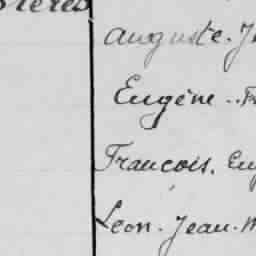 auguste. J
Eugène .. F
Francois. Eu
Leon. Jean. M